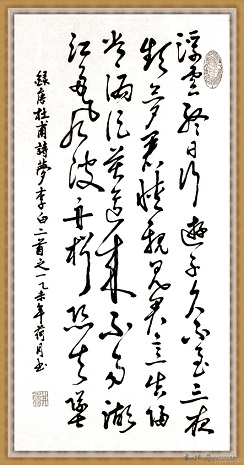 浮雲終日行遊子久不至三夜
頻夢君情親見君意告歸
常局促苦道來不易湖
江多風波舟楫恐失墜
錄唐杜甫詩夢李白二首之一乙未年荷月書